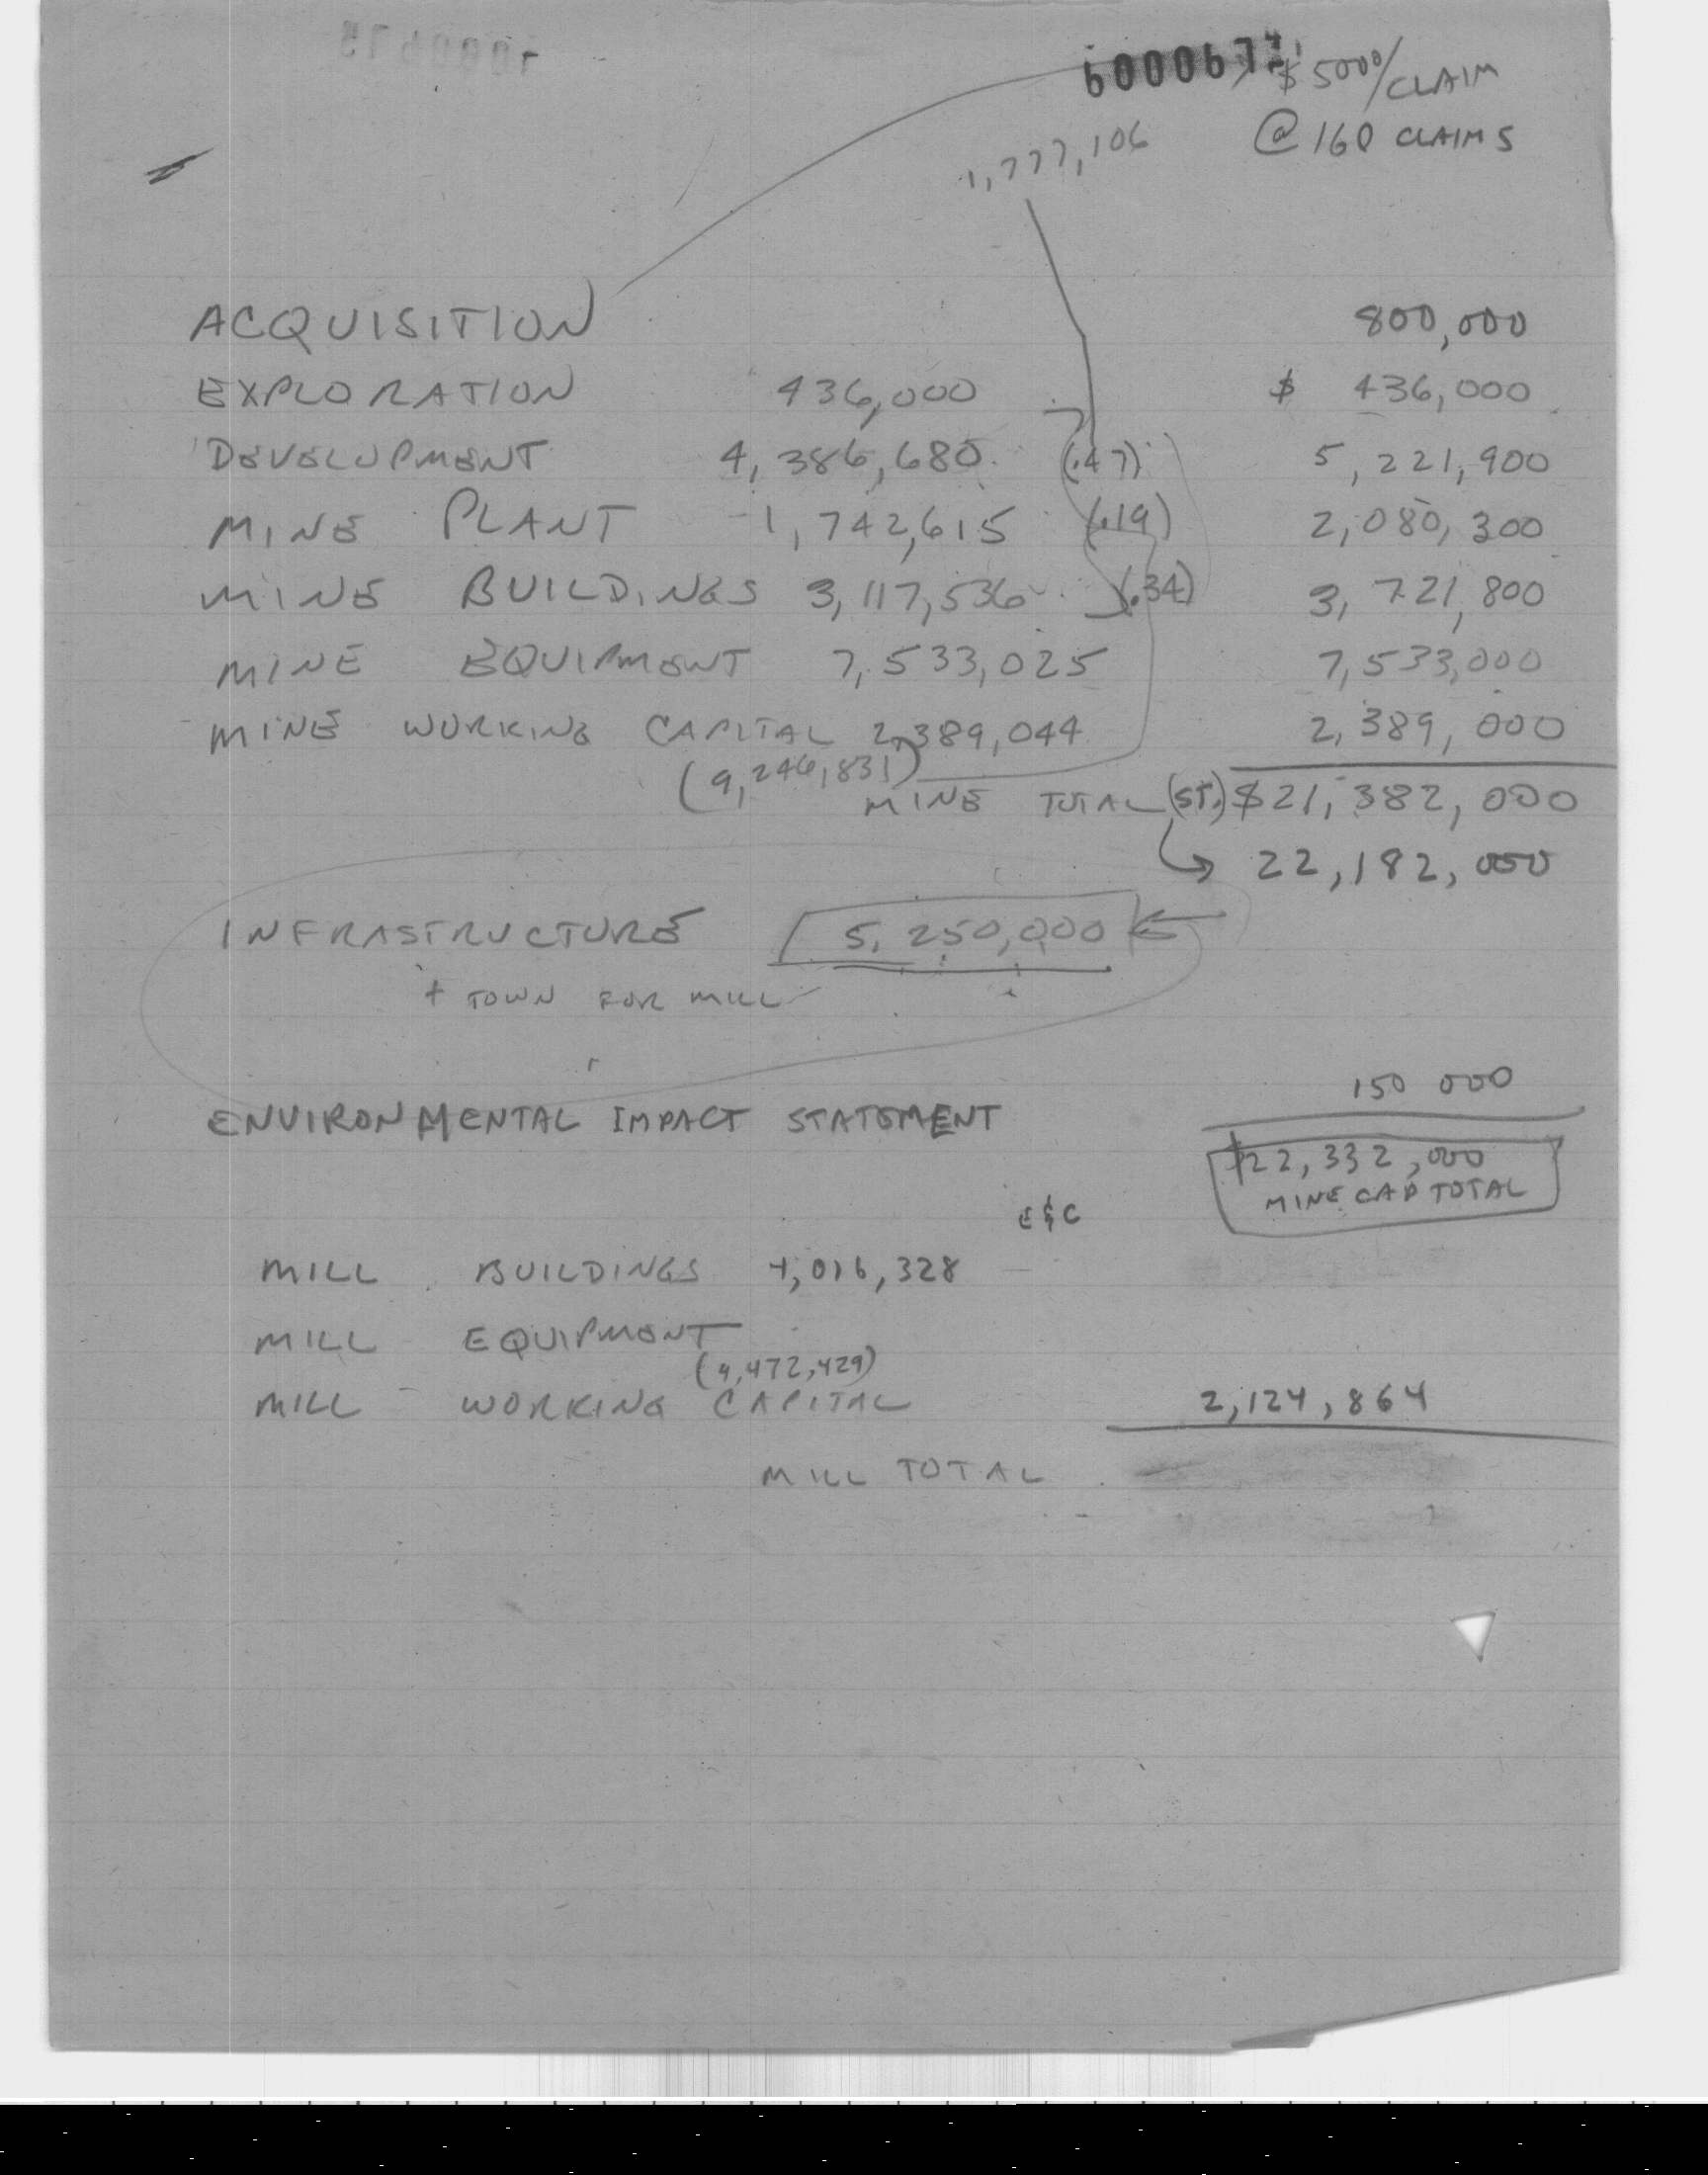 $5000/CLAIM
1,777,106 @ 160 CLAIMS
ACQUISITION 800,000
EXPLORATION 436,000 $ 436,000
DEVELOPMENT 4,386,680 (.47) 5,221,900
MINE PLANT 1,742,615 (.19) 2,080,300
MINE BUILDINGS 3,117,536 (.34) 3,721,800
MINE EQUIPMENT 7,533,025 7,533,000
MINE WORKING CAPITAL 2,389,044 2,389,000
(9,246,831)
MINE TOTAL (ST.) $21,382,000
22,182,000
INFRASTRUCTURE 5,250,000
+ TOWN FOR MILL
150 000
ENVIRONMENTAL IMPACT STATEMENT
$22,332,000
MINE CAP TOTAL
E&C
MILL BUILDINGS 4,016,328
MILL EQUIPMENT
(4,472,429)
MILL WORKING CAPITAL 2,124,864
MILL TOTAL